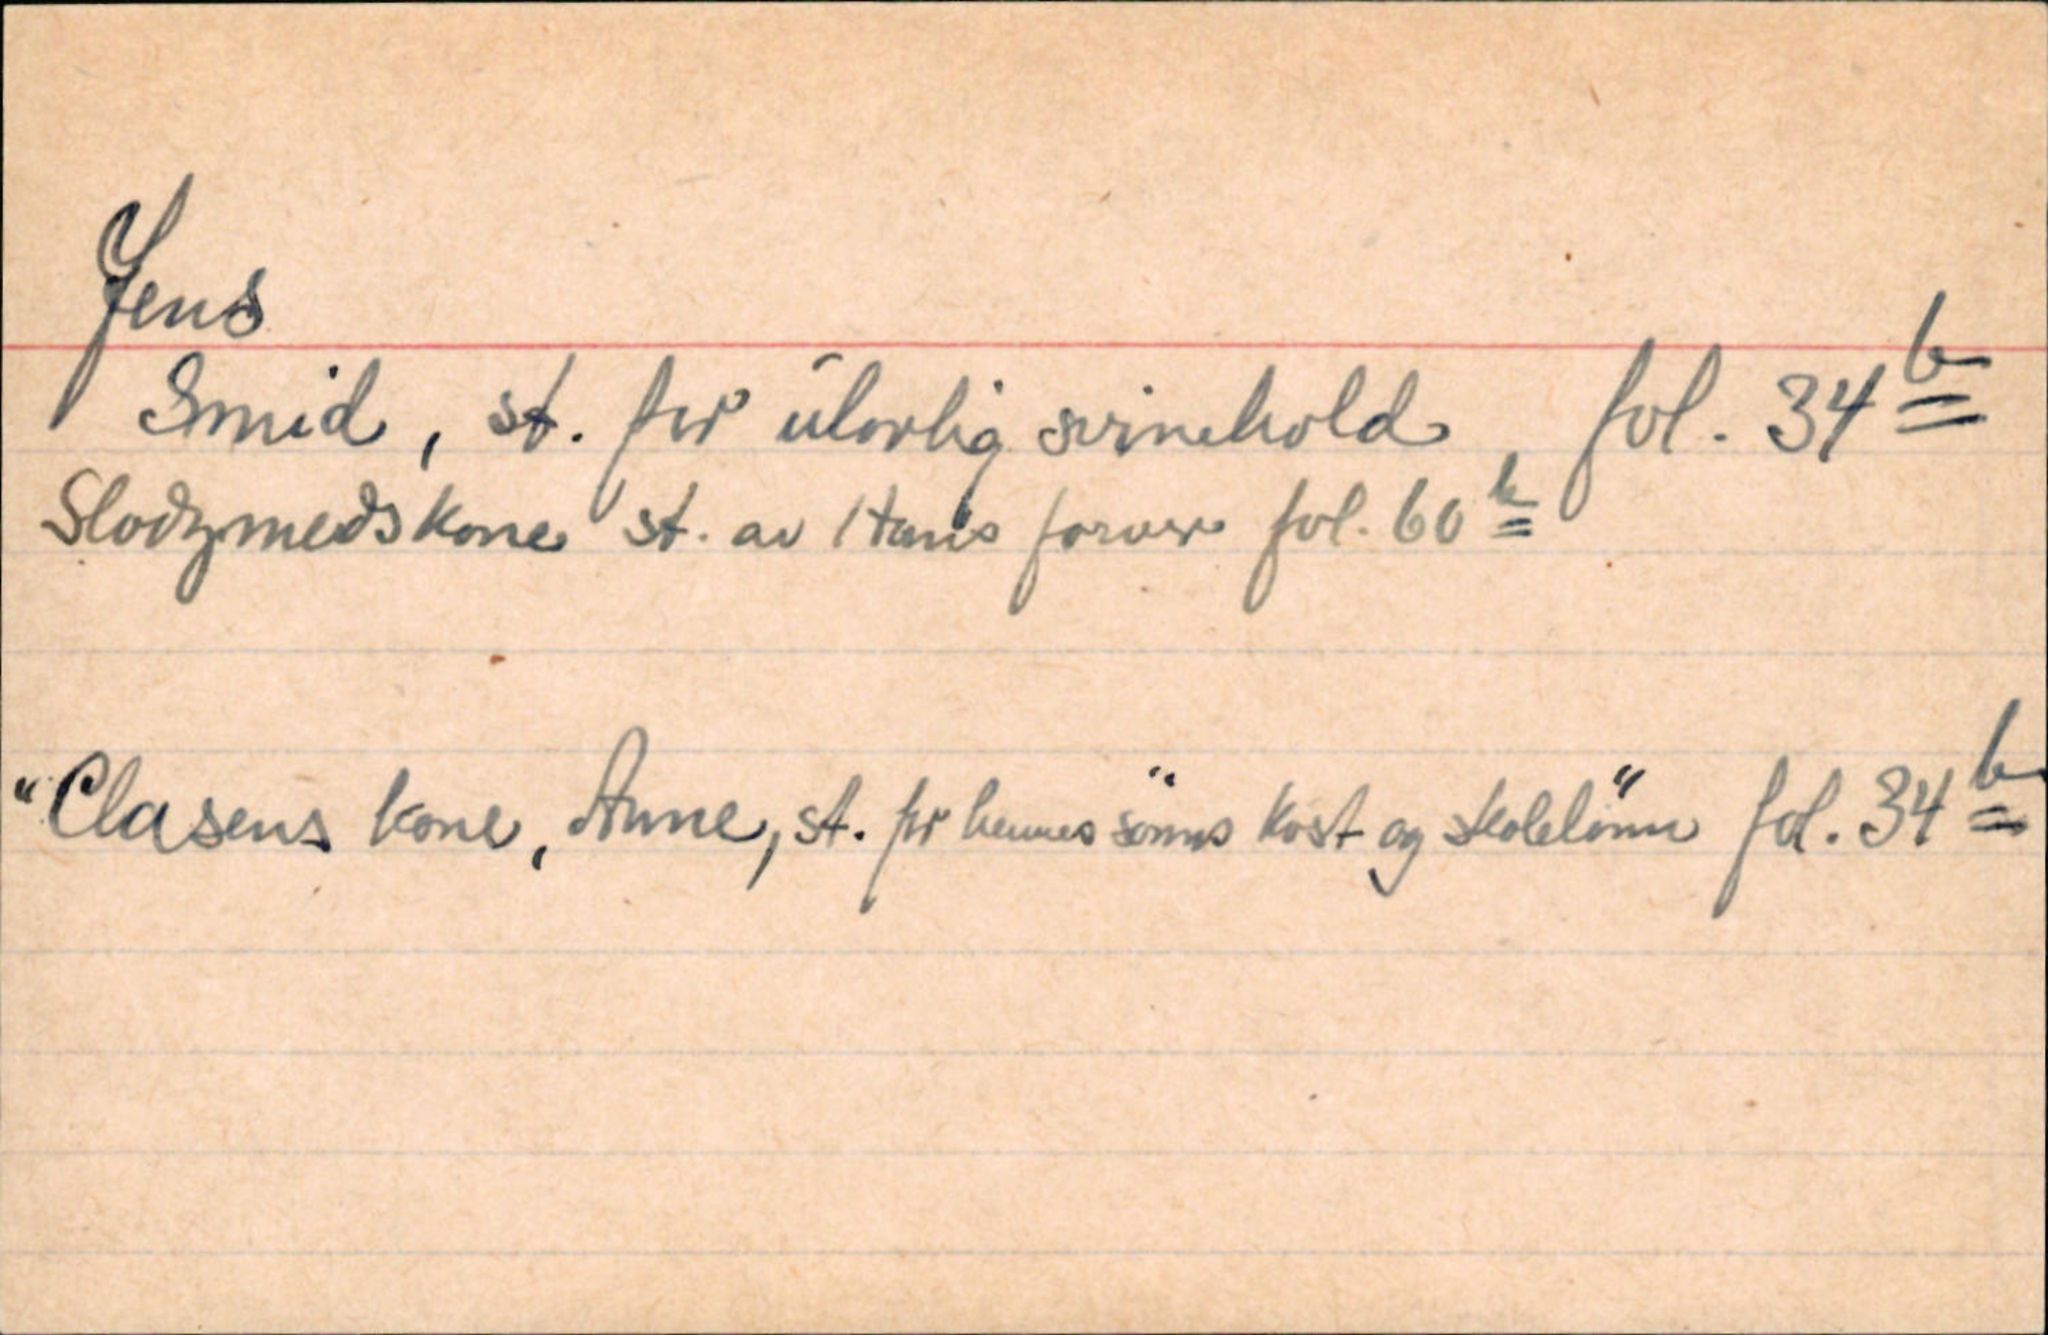 Jens
Smid, st. for ulovlig svinehold, fol. 34 b
Slodzmeds kone st. av Hans farver fol. 60 b
" Clasens kone, Anne, st. for hennes sönns kost og skolelönn fol. 34 b